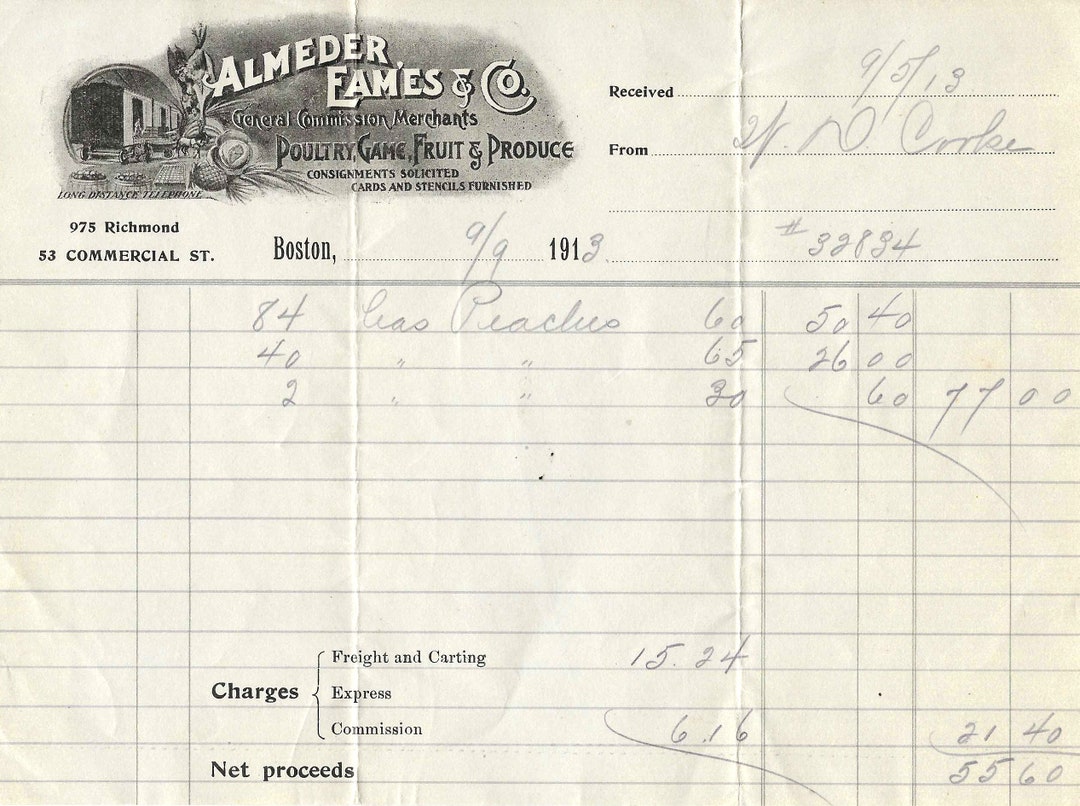 ALMEDER,
EAMES & CO.
General Commission Merchants
POULTRY, GAME, FRUIT & PRODUCE
CONSIGNMENTS SOLICITED
CARDS AND STENCILS FURNISHED
LONG DISTANCE TELEPHONE
975 Richmond
53 COMMERCIAL ST.
Received 9/5/13
From D Cooke
Boston, 9/9 1913
# 32834
84 Peaches 60 50 40
40 " " 65 26 00
2 " " 30 60 77 00
Charges
Freight and Carting 15.24
Express
Commission 6.16 21 40
Net proceeds 55 60